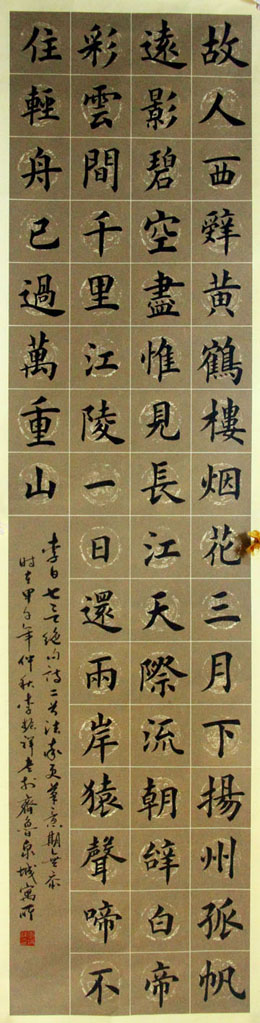 故人西辤黃鶴樓烟花三月下揚州孤帆
遠影碧空盡惟見長江天際流朝辤白帝
彩雲間千里江陵一日還兩岸猿聲啼不
住輕舟已過萬重山
李白七言絕句詩二首
時在甲午年仲秋李 祥書於齊魯泉城寓所